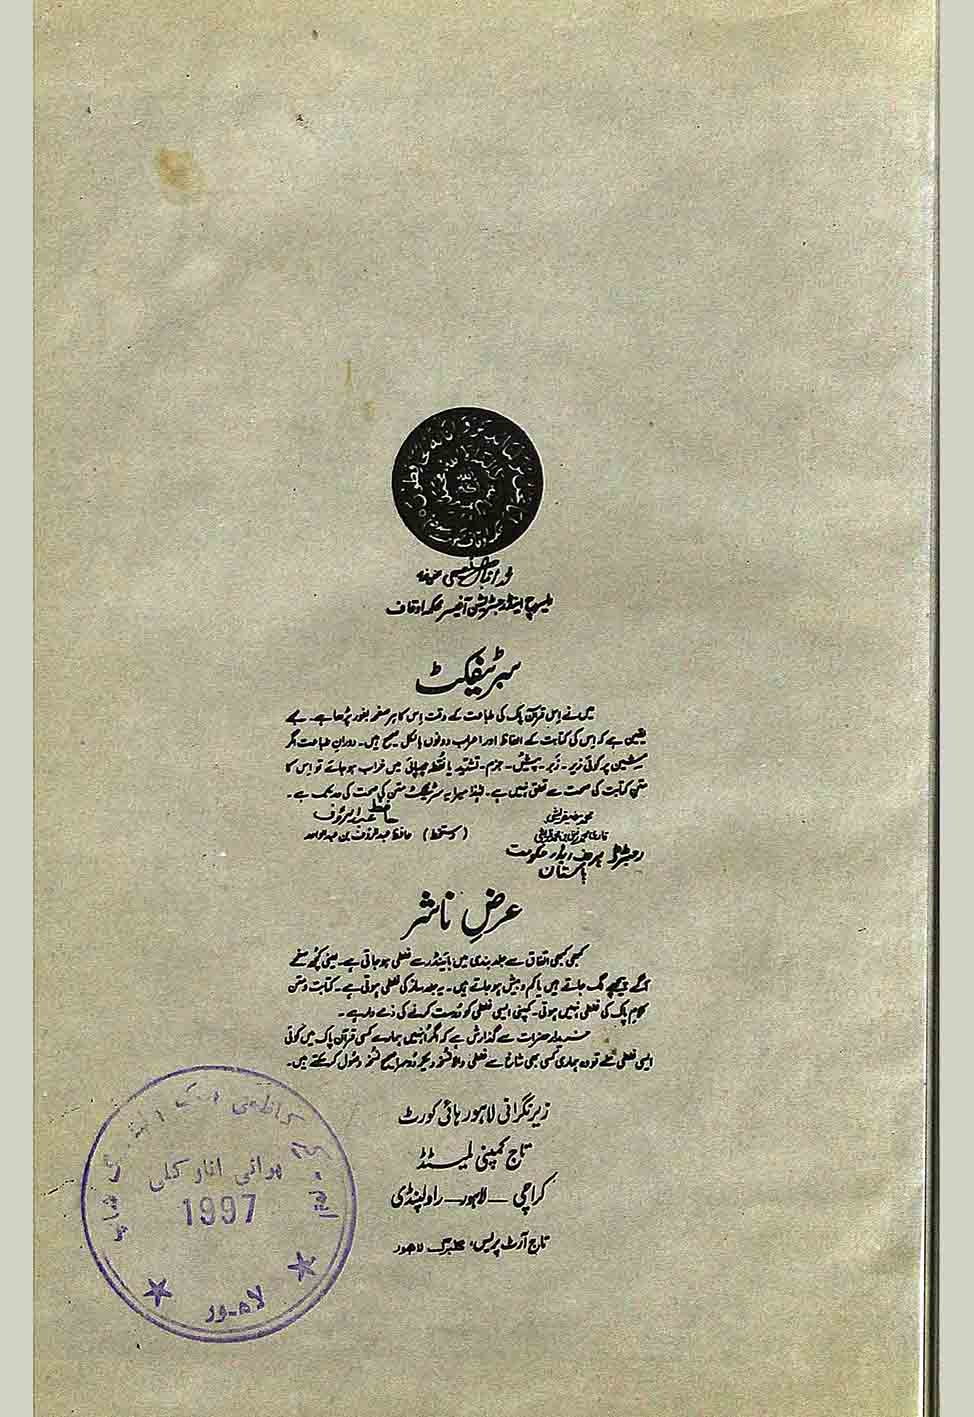 انا نحن نزلنا الذكر وانا له لحافظون
ریسرچ اینڈ رجسٹریشن آفیسر محکمہ اوقاف
سرٹیفکٹ
میں نے اِس قرآن پاک کی طباعت کے وقت اِس کا ہر صفحہ بغور پڑھا ہے۔ مجھے
یقین ہے کہ اِس کی کتابت کے الفاظ اور اعراب دونوں بالکل صحیح ہیں۔ دورانِ طباعت اگر
مشین پر کوئی زیر۔ زبر۔ پیش۔ جزم۔ تشدید یا نقطہ چھپائی میں خراب ہو جائے تو اِس کا
متن کتابت کی صحت سے تعلق نہیں ہے۔ لہٰذا میرا یہ سرٹیفکٹ متن کی صحت کی حد تک ہے۔
حافظ عبدالرؤف
(دستخط) حافظ عبدالرؤف بن
رجسٹرڈ پروف ریڈر حکومت
پاکستان
عرضِ ناشر
کبھی کبھی اتفاق سے جلد بندی میں بائنڈر سے غلطی ہو جاتی ہے۔ یعنی کچھ صفحے
آگے پیچھے لگ جاتے ہیں یا کم و بیش ہو جاتے ہیں۔ یہ جلد ساز کی غلطی ہوتی ہے۔ کتابت و متن
کلامِ پاک کی غلطی نہیں ہوتی۔ کمپنی ایسی غلطی کو دُرست کرنے کی ذمے دار ہے۔
خریدار حضرات سے گذارش ہے کہ اگر اُنہیں ہمارے کسی قرآن پاک میں کوئی
ایسی غلطی ملے تو وہ ہماری کسی بھی شاخ سے غلطی والا نسخہ دیکر دُوسرا صحیح نسخہ وصُول کر سکتے ہیں۔
زیرِ نگرانی لاہور ہائی کورٹ
تاج کمپنی لمیٹڈ
کراچی — لاہور — راولپنڈی
تاج آرٹ پریس، گلبرگ لاہور
پرانی انار کلی
1997
لاہور